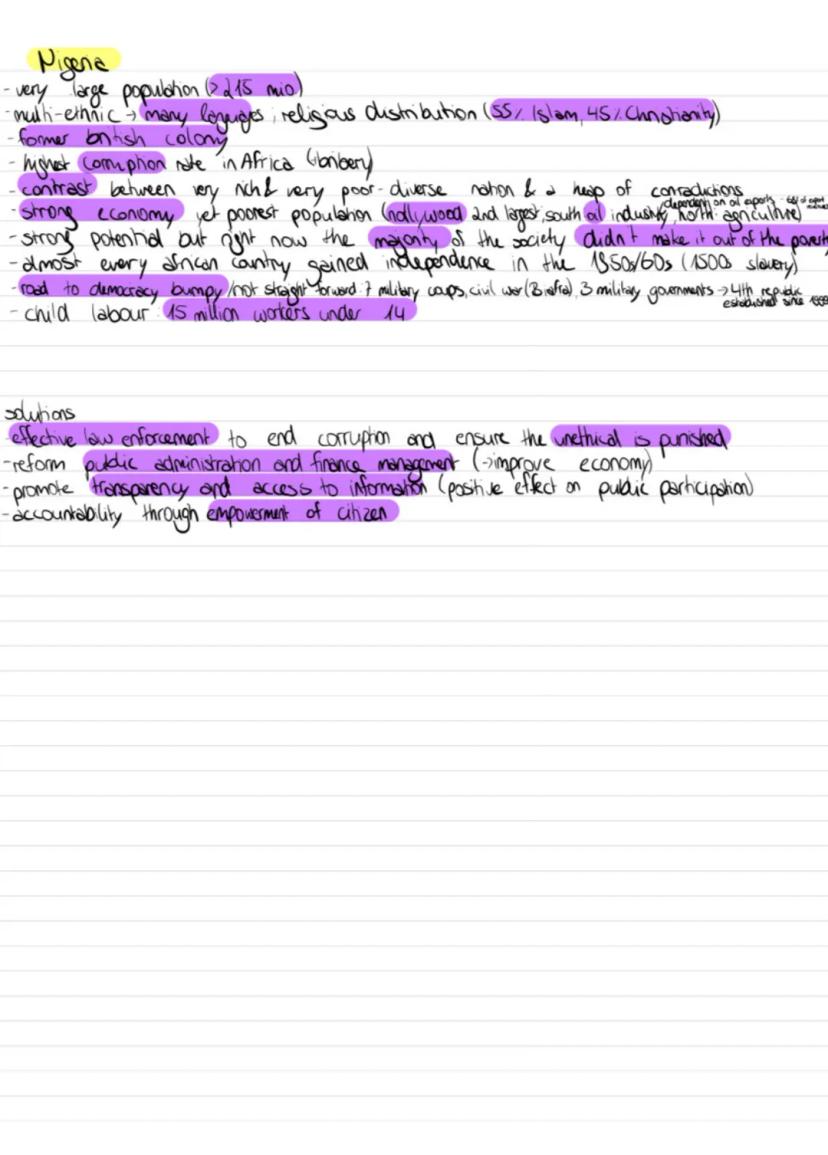 Nigeria
- very large population (> 215 mio)
- multi-ethnic → many languages ; religious distribution (55% Islam, 45% Christianity)
- former british colony
- highest corruption rate in Africa (bribery)
- contrast between very rich & very poor - diverse nation & a heap of contradictions
dependent on oil exports
- strong economy yet poorest population (nollywood 2nd largest, south oil industry, north: agriculture)
- strong potential but right now the majority of the society didn't make it out of the poverty
- almost every african country gained independence in the 1950s/60s (1500s slavery)
- road to democracy bumpy/not straight forward: 7 military coups, civil war (Biafra), 3 military governments → 4th republic
established since 1999
- child labour: 15 million workers under 14
solutions
- effective law enforcement to end corruption and ensure the unethical is punished
- reform public administration and finance management (→ improve economy)
- promote transparency and access to information (positive effect on public participation)
- accountability through empowerment of citizen